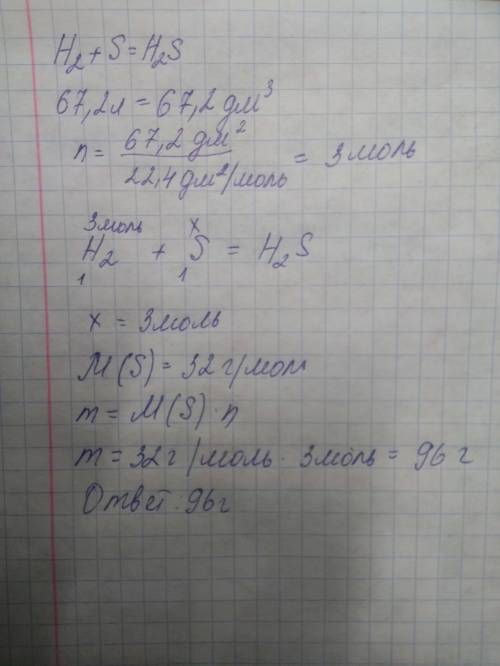 H₂ + S = H₂S
67,2л = 67,2 дм³
n = 67,2 дм² / 22,4 дм²/моль = 3 моль
3моль x
H₂ + S = H₂S
1 1
x = 3моль
M(S) = 32 г/моль
m = M(S) · n
m = 32 г/моль · 3моль = 96 г
Ответ: 96г